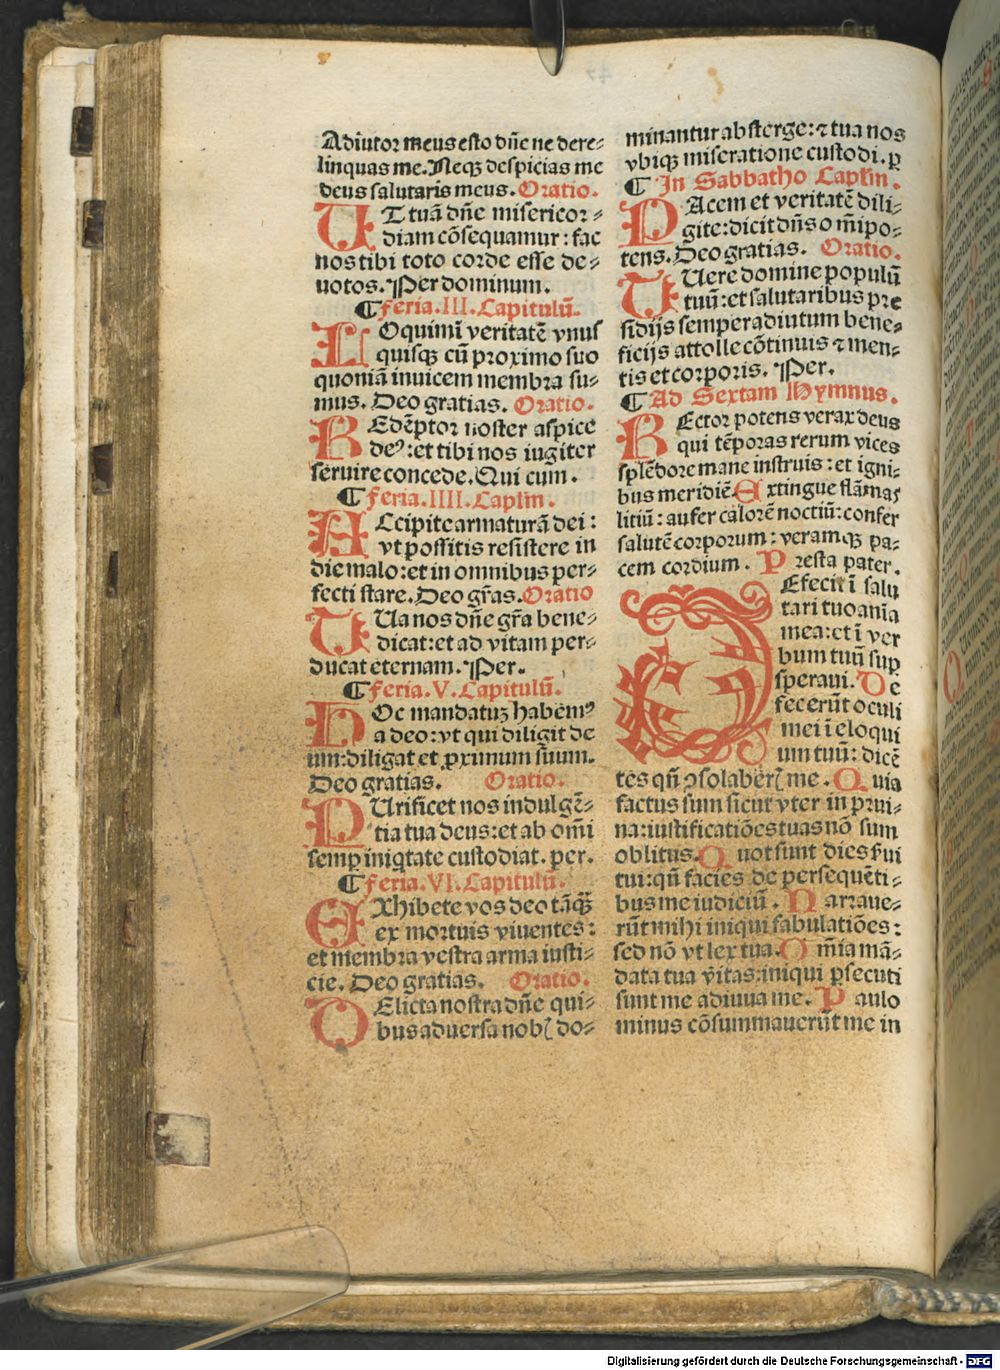 Adiutor meus esto dn̄e ne dere⸗
linquas me. Neqꝫ despicias me
deus salutaris meus. Oratio.
UT tuā dn̄e misericor⸗
diam cōsequamur: fac
nos tibi toto corde esse de⸗
uotos. Per dominum.
¶ feria. III. Capitulū.
LOquimī veritatē vnus
quisqꝫ cū proximo suo
quoniā inuicem membra su⸗
mus. Deo gratias. Oratio.
REdēptor noster aspice
deꝰ: et tibi nos iugiter
seruire concede. Qui cum.
¶ feria. IIII. Caplm̄.
ACcipite armaturā dei:
vt possitis resistere in
die malo: et in omnibus per⸗
fecti stare. Deo gr̄as. Oratio
UUa nos dn̄e gr̄a bene⸗
dicat: et ad vitam per⸗
ducat eternam. Per.
¶ feria. V. Capitulū.
HOc mandatuꝫ habemꝰ
a deo: vt qui diligit de
um: diligat et ꝓximum suum.
Deo gratias. Oratio.
PUrificet nos indulgē⸗
tia tua deus: et ab om̄i
semꝑ iniqtate custodiat. per.
¶ feria. VI. Capitulū.
EXhibete vos deo tāqꝫ
ex mortuis viuentes:
et membra vestra arma iusti⸗
cie. Deo gratias. Oratio.
DElicta nostra dn̄e qui⸗
bus aduersa nobꝭ do⸗
minantur absterge: ⁊ tua nos
vbiqꝫ miseratione custodi. ꝑ
¶ In Sabbatho Caplm̄.
PAcem et veritatē dili⸗
gite: dicit dn̄s om̄ipo⸗
tens. Deo gratias. Oratio.
TUere domine populū
tuū: et salutaribus pre
sidijs semper adiutum bene⸗
ficijs attolle cōtinuis ⁊ men⸗
tis et corporis. Per.
¶ Ad Sextam Hymnus.
REctor potens verax deus
qui tēporas rerum vices
splēdore mane instruis: et igni⸗
bus meridiē. Extingue flāmas
litiū: aufer calorē noctiū: confer
salutē corporum: veramqꝫ pa⸗
cem cordium. Presta pater.
DEfecit ī salu
tari tuo anīa
mea: et ī ver
bum tuū sup
speraui. De
fecerūt oculi
mei ī eloqui
um tuū: dicē
tes qn̄ ꝯsolaberꝭ me. Quia
factus sum sicut vter in prui⸗
na: iustificatiōes tuas nō sum
oblitus. Quot sunt dies s̄ui
tui: qn̄ facies de persequēti⸗
bus me iudiciū. Narraue⸗
rūt mihi iniqui fabulatiōes:
sed nō vt lex tua. Om̄ia mā⸗
data tua v̄itas: iniqui ꝑsecuti
sunt me adiuua me. Paulo
minus cōsummauerūt me in
Digitalisierung gefördert durch die Deutsche Forschungsgemeinschaft - DFG